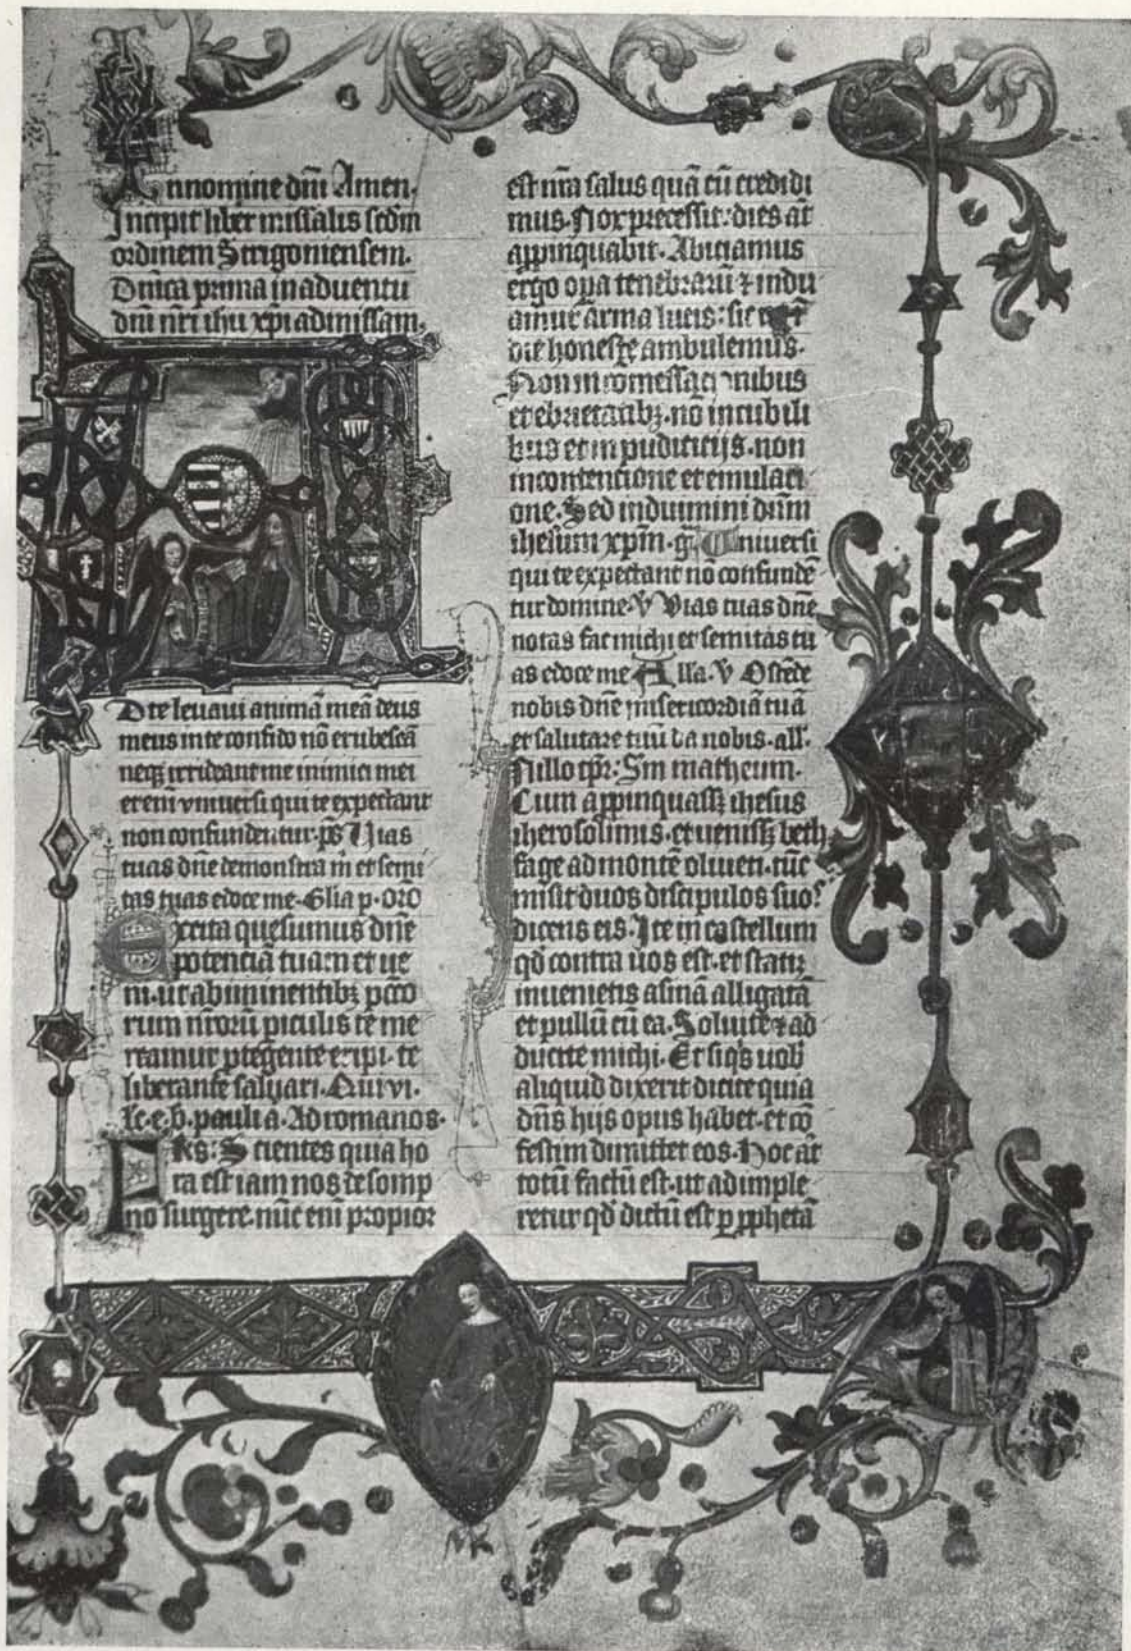 Innomine dñi Amen.
Incipit liber missalis scdm
ordinem Strigoniensem.
Dñica prima in aduentu
dñi nr̄i ihu xp̄i ad missam.
A
D te leuaui animā meā deus
meus in te confido nō erubescā
neqꝫ irrideant me inimici mei
etem̄ vniuersi qui te expectant
non confundentur. p̄s Vias
tuas dn̄e demonstra m̄ et semi
tas tuas edoce me. Glia p. oro
Excita quesumus dn̄e
potenciā tuam et ue
ni. ut ab iminentibꝫ pcc̄o
rum nr̄orū piculis te me
reamur ptegente eripi. te
liberante saluari. Qui vi.
lc̄. e. b. pauli a. Ad romanos.
Frs: Scientes quia ho
ra est iam nos de somp
no surgere. nūc eni propior
est nr̄a salus quā cū credidi
mus. Nox precessit: dies at̄
appinquabit. Abiciamus
ergo opa tenebrarū ⁊ indu
amur arma lucis: sic
die honeste ambulemus.
Non in comessacionibus
et ebrietatibꝫ. nō in cubili
bus et in pudicitijs. non
in contencione et emulaci
one. Sed induimini dnm̄
ihesum xp̄m. gr̄ Uniuersi
qui te expectant nō confundē
tur domine. V̄ Vias tuas dn̄e
notas fac michi et semitas tu
as edoce me Alla. V̄ Ostēde
nobis dn̄e misericordiā tuā
et salutare tuū da nobis. all.
In illo tpr̄: Sm̄ matheum.
Cum appinquassꝫ ihesus
iherosolimis. et uenissꝫ beth
fage ad montē oliueti. tūc
misit duos discipulos suos
dicens eis. Ite in castellum
qd̄ contra uos est. et statiꝫ
inuenietis asinā alligatā
et pullū cū ea. Soluite ⁊ ad
ducite michi. Et siqs uob̄
aliquid dixerit dicite quia
dn̄s hijs opus habet. et cō
festim dimittet eos. Hoc at̄
totū factū est. ut adimple
retur qd̄ dictū est p pphetā